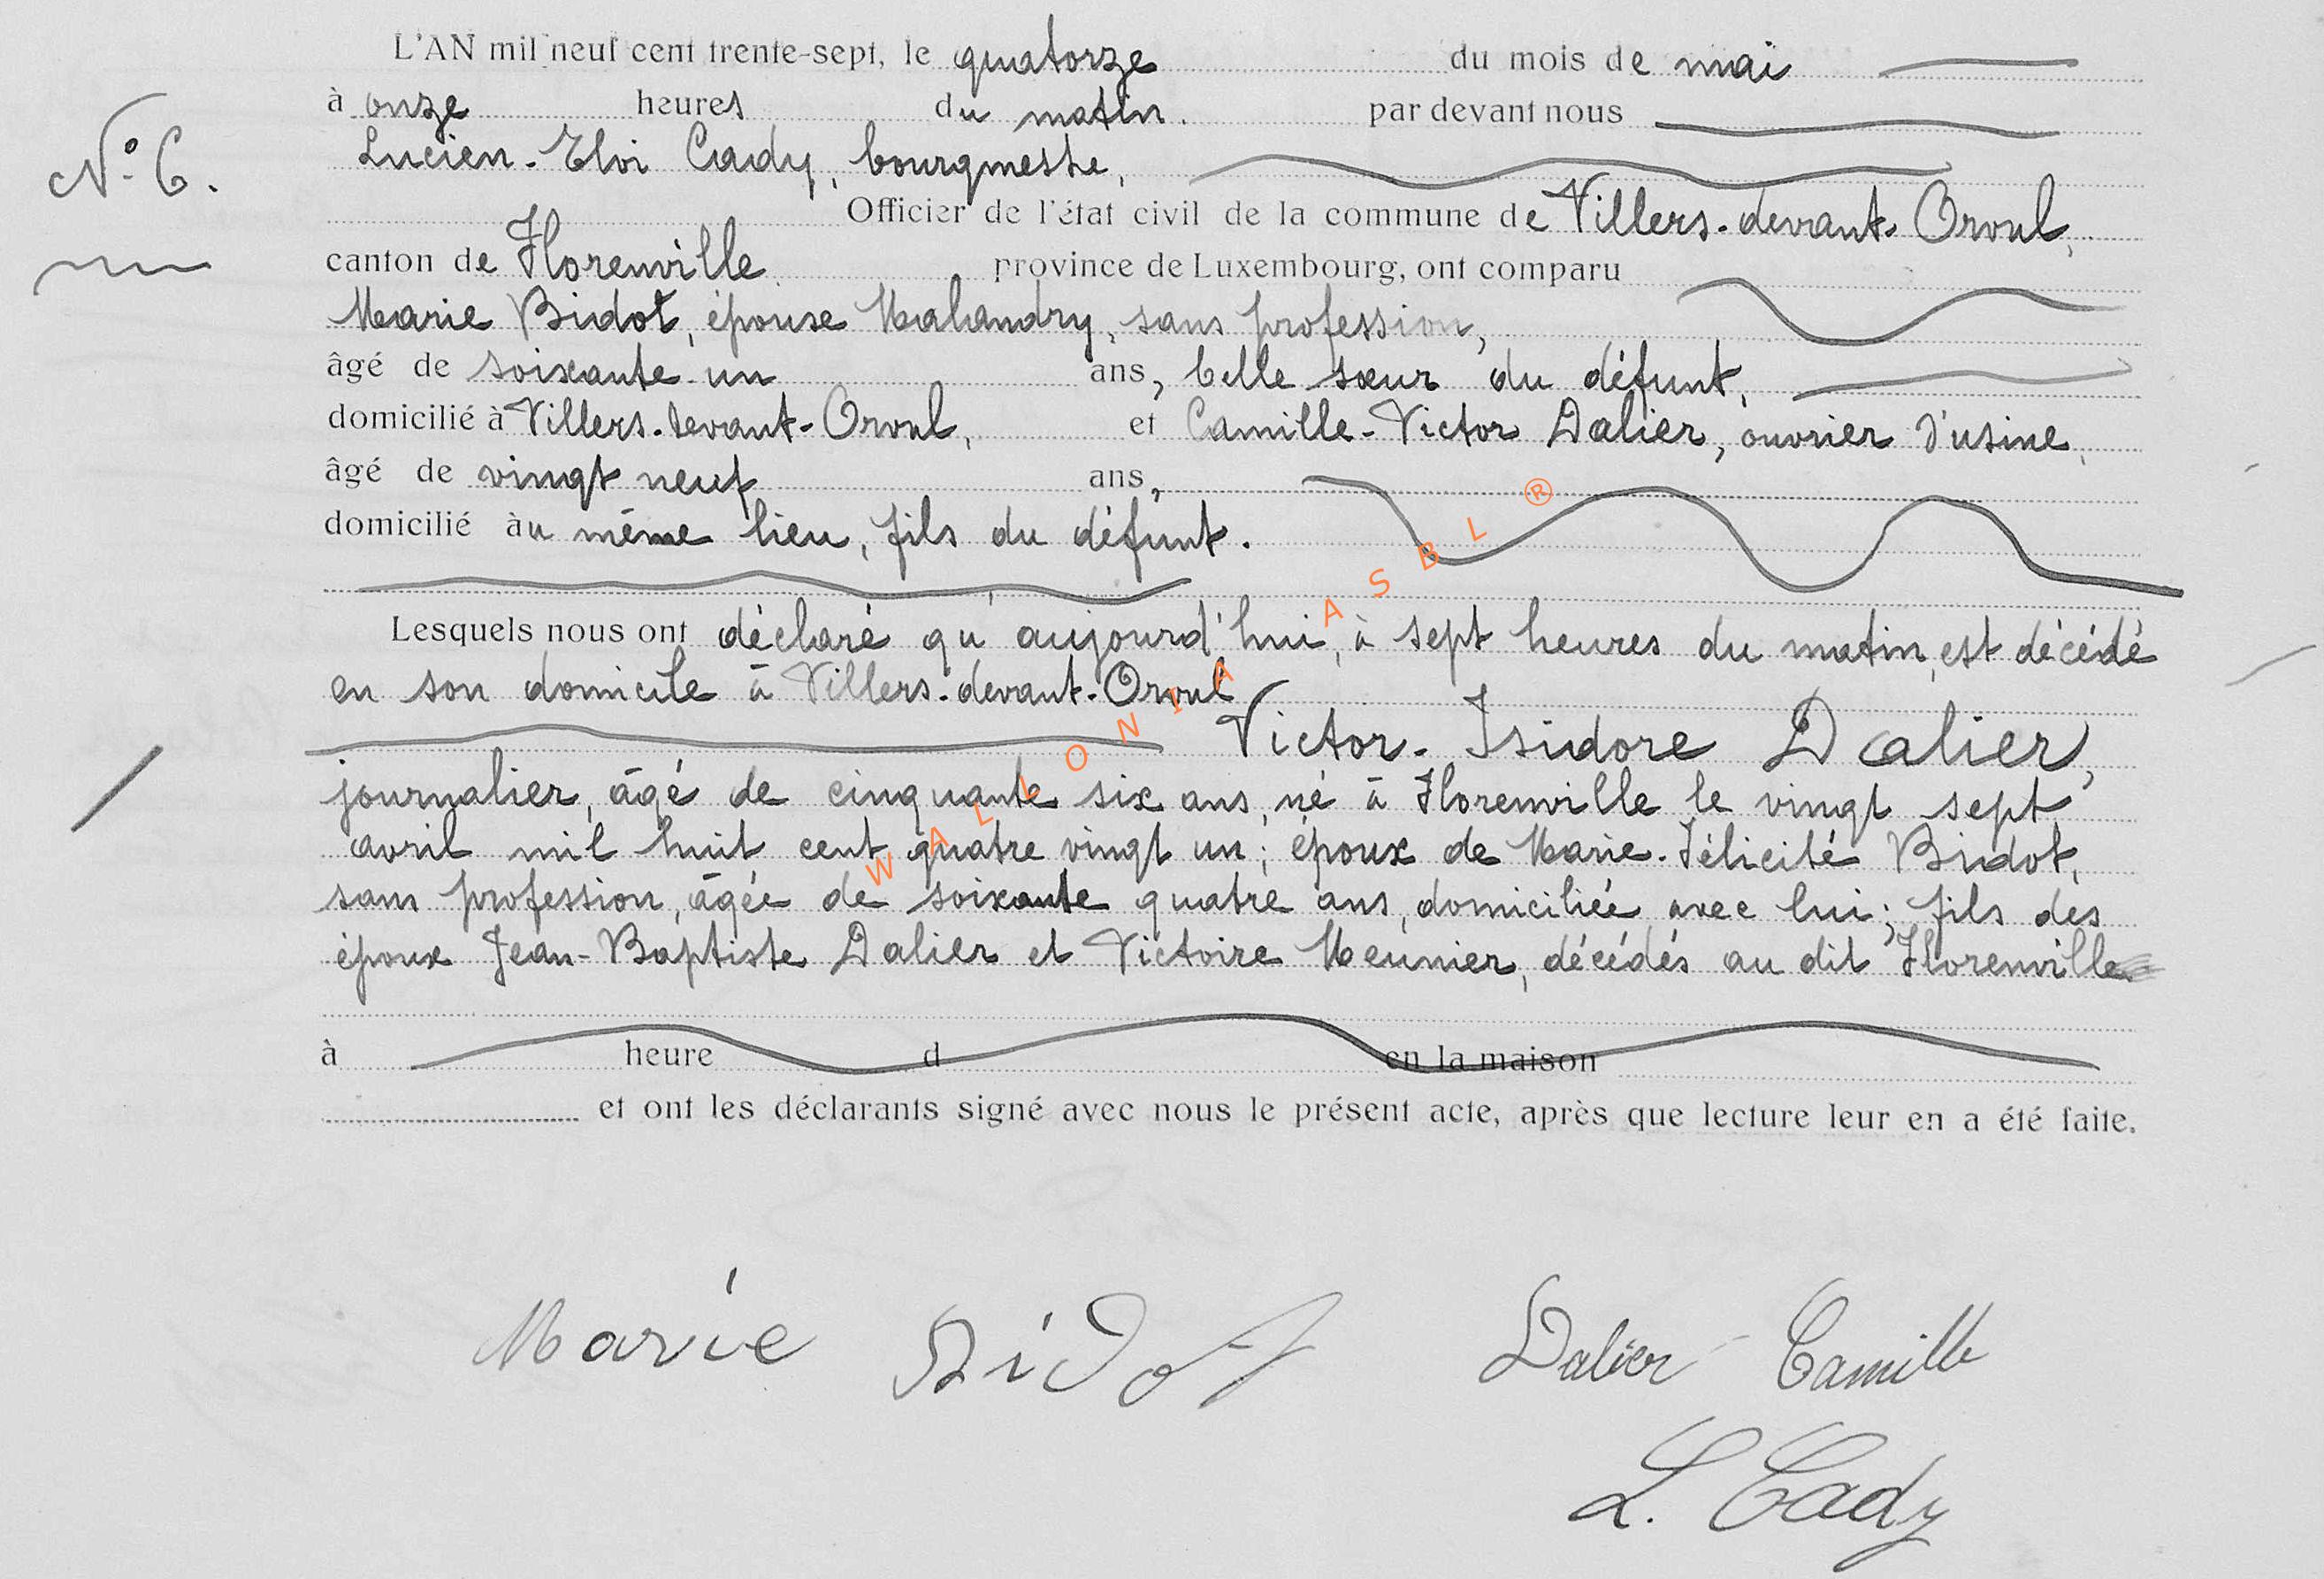 L'AN mil neuf cent trente-sept, le quatorze du mois de mai
à onze heures du matin. par devant nous
N° 6.
Lucien-Eloi Cady, bourgmestre,
Officier de l'état civil de la commune de Villers-devant-Orval,
canton de Florenville province de Luxembourg, ont comparu
Marie Bidot, épouse Mahandry, sans profession,
âgé de soixante-un ans, belle sœur du défunt,
domicilié à Villers-devant-Orval, et Camille-Victor Dalier, ouvrier d'usine,
âgé de vingt neuf ans,
domicilié au même lieu, fils du défunt.
Lesquels nous ont déclaré qu'aujourd'hui, à sept heures du matin, est décédé
en son domicile à Villers-devant-Orval
Victor-Isidore Dalier,
journalier, âgé de cinquante six ans, né à Florenville le vingt sept
avril mil huit cent quatre vingt un; époux de Marie-Félicité Bidot,
sans profession, âgée de soixante quatre ans, domiciliée avec lui; fils des
époux Jean-Baptiste Dalier et Victoire Meunier, décédés au dit Florenville
à heure d en la maison
et ont les déclarants signé avec nous le présent acte, après que lecture leur en a été faite.
Marie Bidot Dalier Camille
L. Cady
WALLONIA ASBL ®